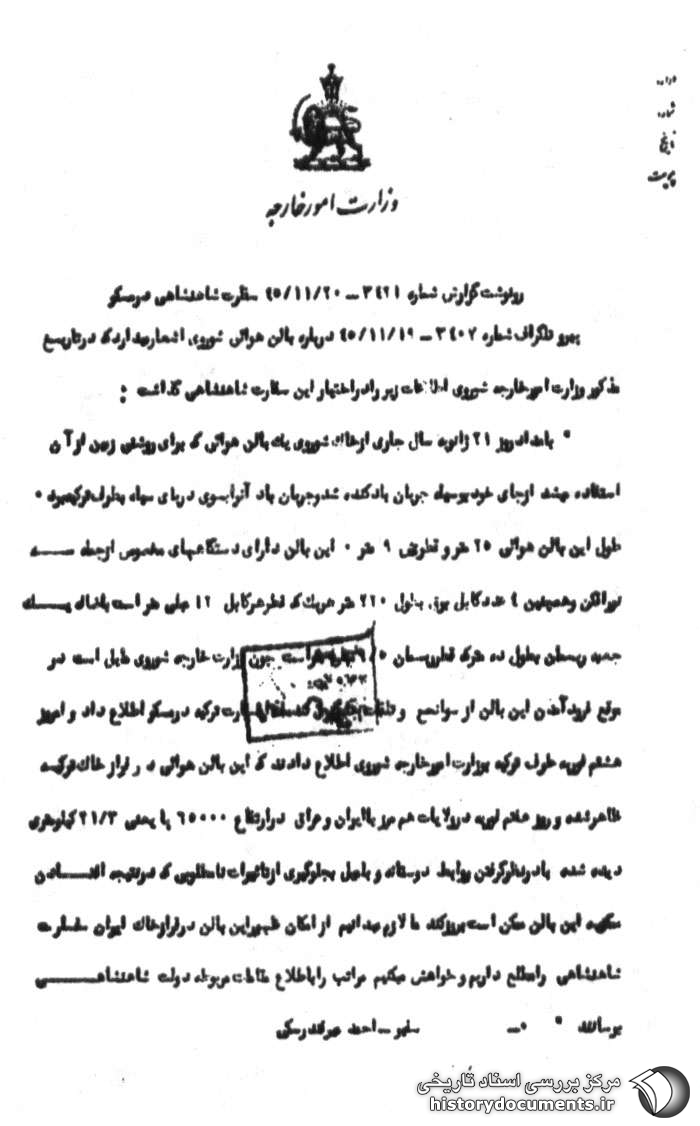 اداره
شماره
تاریخ
پیوست
وزارت امور خارجه
رونوشت گزارش شماره ۳۴۲۱ ــ ۴۵/۱۱/۲۰ سفارت شاهنشاهی در مسکو
پیرو تلگراف شماره ۳۴۰۷ ــ ۴۵/۱۱/۱۹ درباره بالن هوائی شوروی اشعار میدارد که در تاریخ
مذکور وزارت امور خارجه شوروی اطلاعات زیر را در اختیار این سفارت شاهنشاهی گذاشت :
" بامداد روز ۲۱ ژانویه سال جاری از خاک شوروی یک بالن هوائی که برای روشنی زمین از آن
استفاده میشد از جای خود بوسیله جریان باد کنده شد و جریان باد آنرا بسوی دریای سیاه بطرف ترکیه برد ۰
طول این بالن هوائی ۲۵ متر و قطرش ۹ متر ۰ این بالن دارای دستگاههای مخصوص از جمله ســه
نورافکن و همچنین ۴ عدد کابل برق بطول ۲۲۰ متر هریک که قطر هر کابل ۱۲ میلی متر است باضافه یــک
ریسمان بطول ده متر که قطر ریسمان است چون وزارت خارجه شوروی مایل است در
موقع فرود آمدن این بالن از سوانح و تلفات سفارت ترکیه در مسکو اطلاع داد و امروز
هشتم فوریه طرف ترکیه بوزارت امور خارجه شوروی اطلاع دادند که این بالن هوائی در فراز خاک ترکیه
ظاهر شده و روز هفتم فوریه در ولایات هم مرز با ایران و عراق در ارتفاع ۶۵۰۰۰ پا یعنی ۲۱/۳ کیلومتری
دیده شده با در نظر گرفتن روابط دوستانه و با میل بجلوگیری از تاثیرات نامطلوبی که در نتیجه افتــادن
این بالن ممکن است بروز کند ما لازم میدانیم از امکان ظهور این بالن در فراز خاک ایران سفارت
شاهنشاهی را مطلع داریم و خواهش میکنیم مراتب را باطلاع مقامات مربوطه دولت شاهنشاهــی
برسانند " ۰ــ سفیر ــ احمد میرفندرسکی
مرکز بررسی اسناد تاریخی
historydocuments.ir